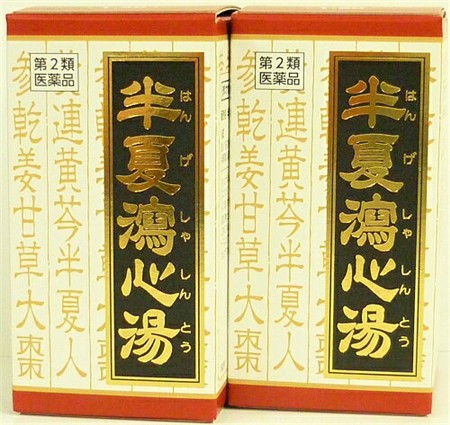 第2類
医薬品
半夏瀉心湯
はんげしゃしんとう
連黄芩半夏人
参乾姜甘草大棗
第2類
医薬品
半夏瀉心湯
はんげしゃしんとう
連黄芩半夏人
参乾姜甘草大棗